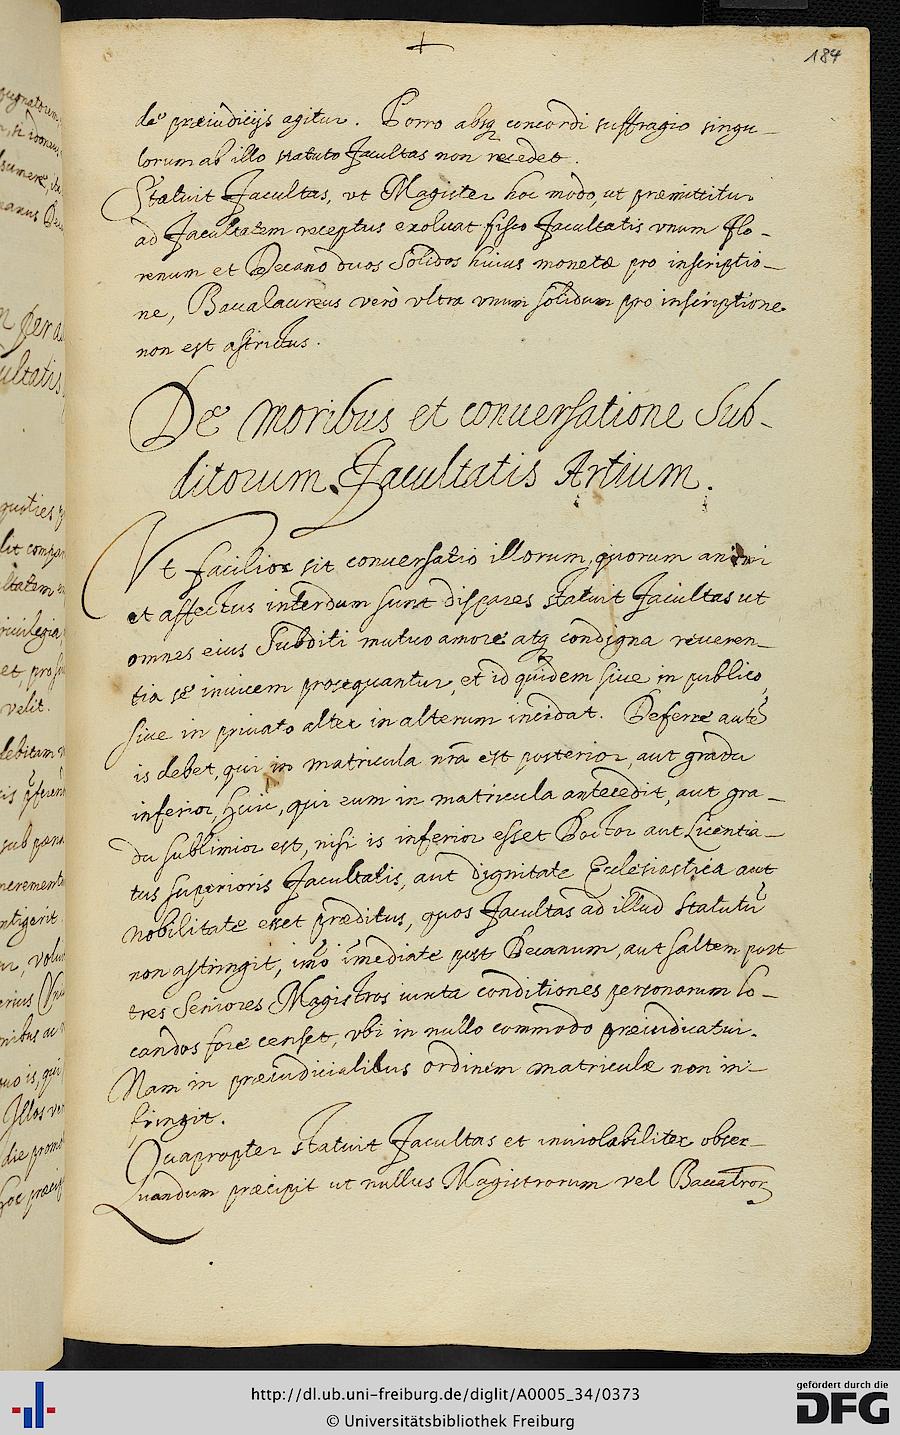 184
de præiudicijs agitur. Porro absq concordi suffragio singu-
lorum ab illo statuto Facultas non recedet.
Statuit Facultas, vt Magister hoc modo, ut præmittitur
ad Facultatem receptus exoluat fisco Facultatis vnum flo-
renum et Decano duos Solidos huius monetæ pro inscriptio-
ne, Baccalaureus verò vltra vnum solidum pro inscriptione
non est astrictus.
De moribus et conuersatione Sub-
ditorum Facultatis Artium.
Vt facilior sit conuersatio illorum, quorum animi
et affectus interdum sunt dispares statuit Facultas ut
omnes eius Subditi mutuo amore atq condigna reueren-
tia se inuicem prosequantur, et id quidem siue in publico,
siue in priuato alter in alterum incidat. Deferre autē
is debet, qui in matricula nrā est posterior, aut gradu
inferior, huic, qui eum in matricula antecedit, aut gra-
du sublimior est, nisi is inferior esset Doctor aut Licentia-
tus superioris Facultatis, aut dignitate Ecclesiastica aut
nobilitate esset præditus, quos Facultas ad illud statutū
non astringit, imò im̄ediate post Decanum, aut saltem post
tres Seniores Magistros iuxta conditiones personarum lo-
candos fore censet, vbi in nullo commodo præiudicatur.
Nam in præiudicialibus ordinem matriculæ non in-
fringit.
Quapropter statuit Facultas et inuiolabiliter obser-
uandum præcipit ut nullus Magistrorum vel Baccalror
http://dl.ub.uni-freiburg.de/diglit/A0005_34/0373
© Universitätsbibliothek Freiburg
gefördert durch die
DFG